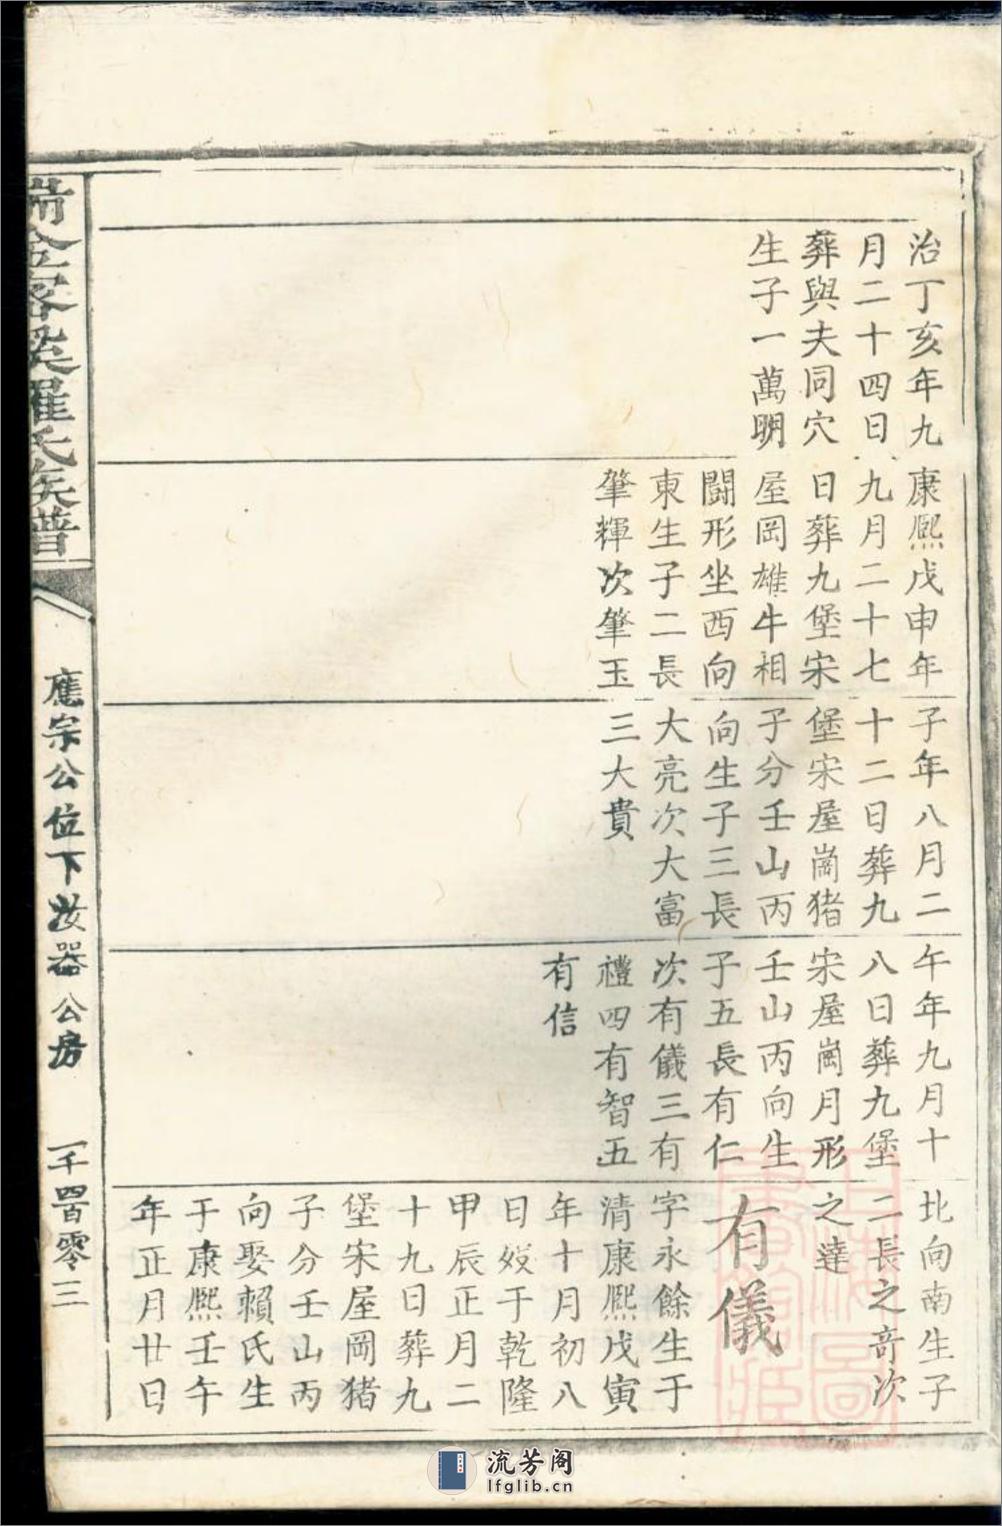 治丁亥年九
月二十四日
葬與夫同穴
生子一萬明
康熙戊申年
九月二十七
日葬九堡宋
屋岡雄牛相
鬪形坐西向
東生子二長
肇輝次肇玉
子年八月二
十二日葬九
堡宋屋崗猪
子分壬山丙
向生子三長
大亮次大富
三大貴
午年九月十
八日葬九堡
宋屋崗月形
壬山丙向生
子五長有仁
次有儀三有
禮四有智五
有信
北向南生子
二長之奇次
之達
有儀
字永餘生于
清康熙戊寅
年十月初八
日歿于乾隆
甲辰正月二
十九日葬九
堡宋屋岡猪
子分壬山丙
向娶賴氏生
于康熙壬午
年正月廿日
瑞金密溪羅氏族譜
應宗公位下汝器公房
一千四百零三
流芳阁
lfglib.cn